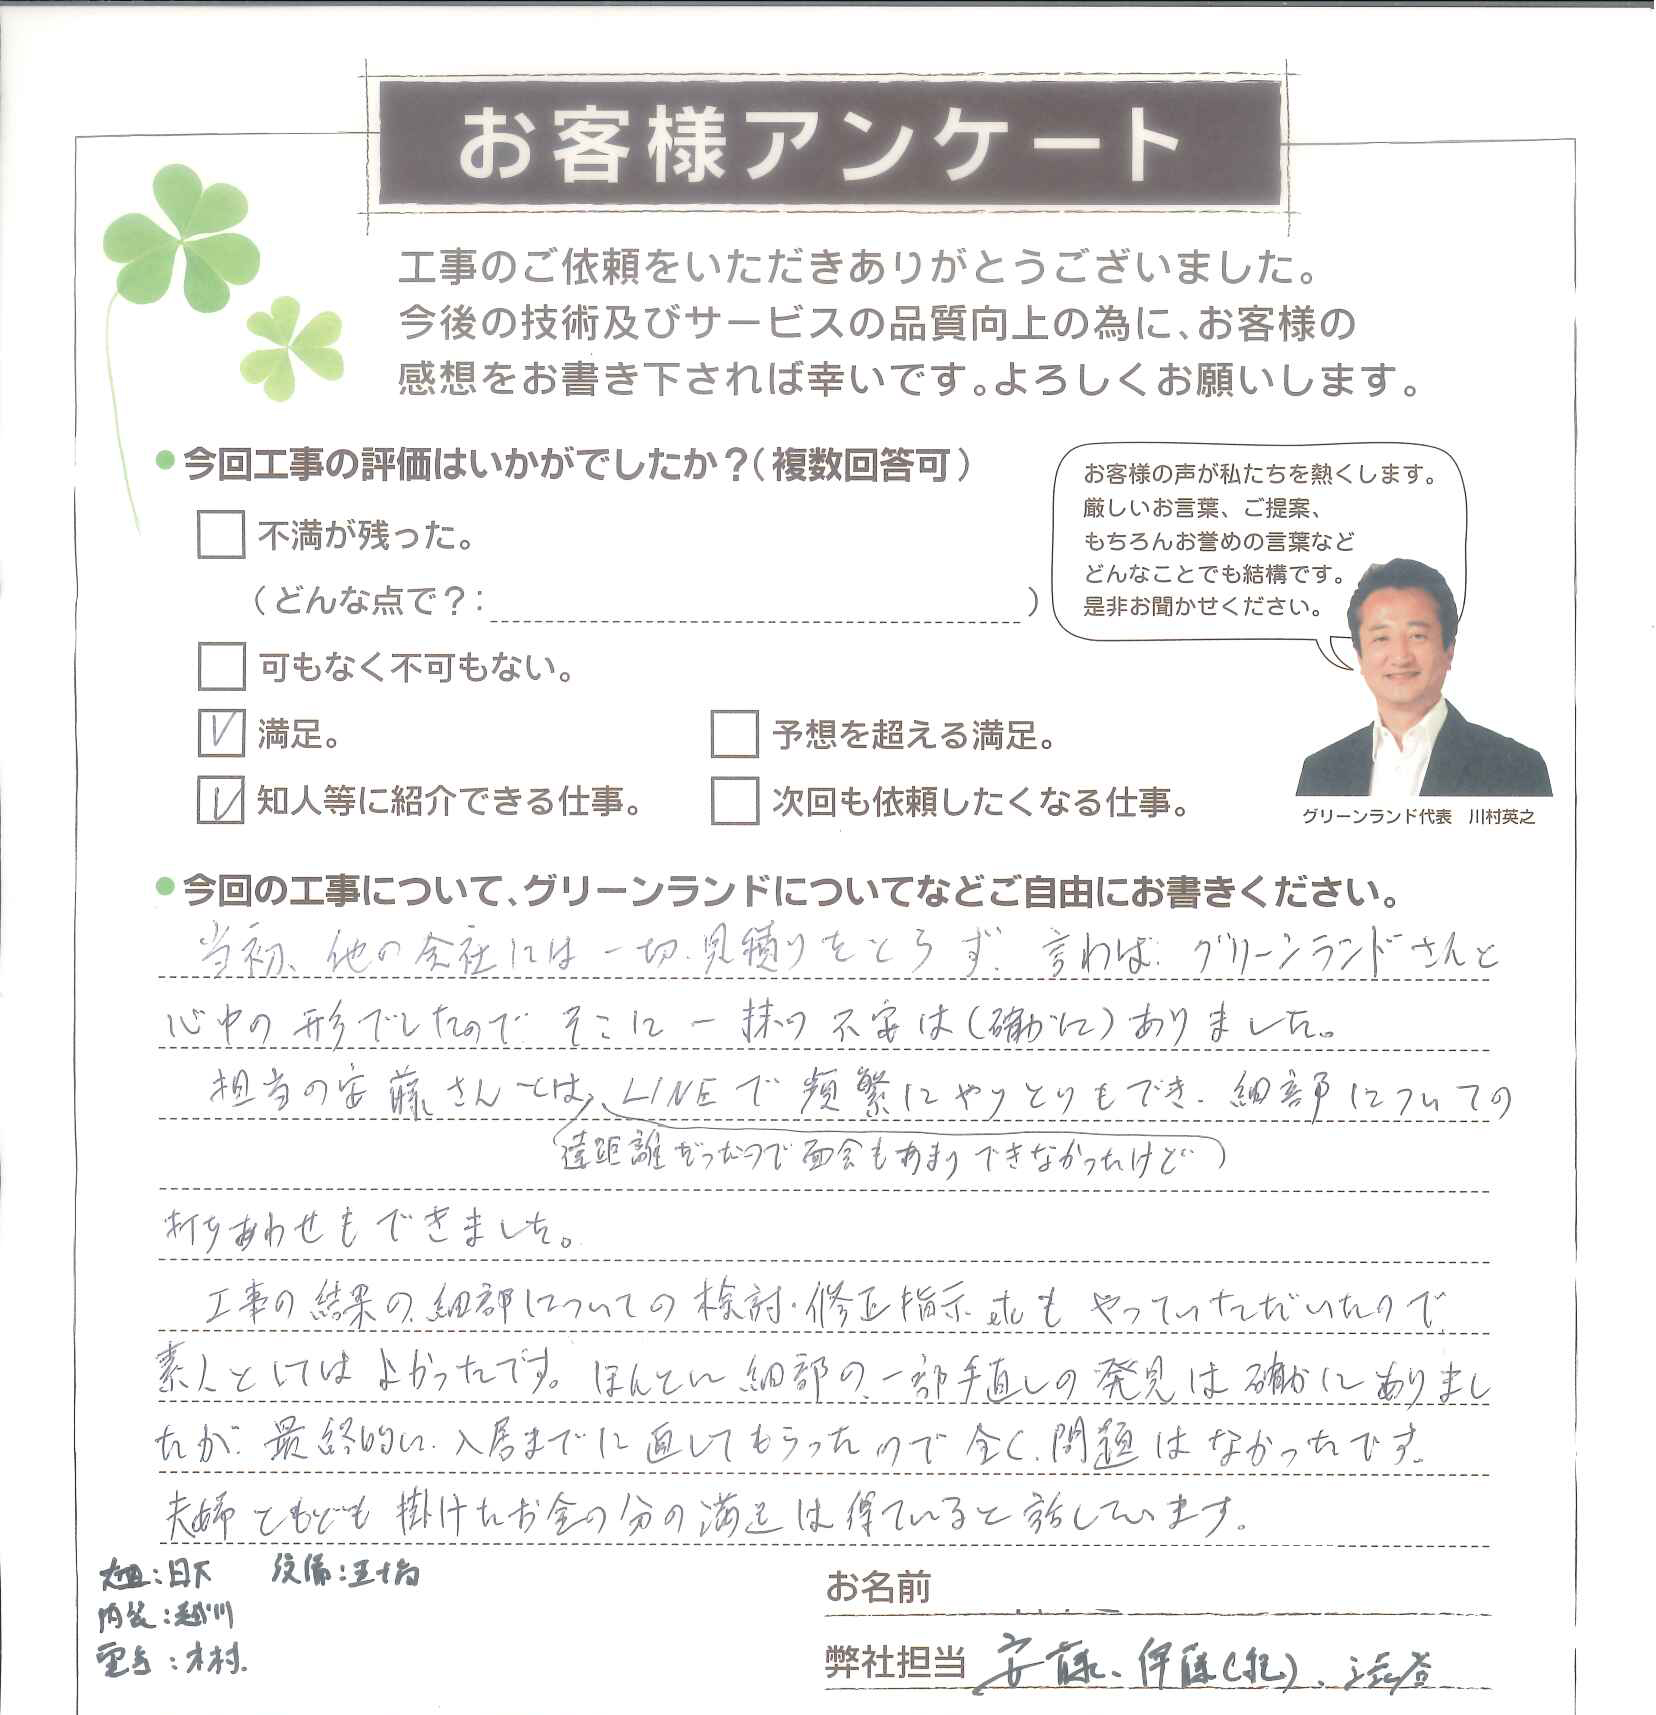 お客様アンケート
工事のご依頼をいただきありがとうございました。
今後の技術及びサービスの品質向上の為に、お客様の
感想をお書き下されば幸いです。よろしくお願いします。
今回工事の評価はいかがでしたか？（複数回答可）
不満が残った。
（どんな点で？：　）
可もなく不可もない。
満足。
予想を超える満足。
知人等に紹介できる仕事。
次回も依頼したくなる仕事。
お客様の声が私たちを熱くします。
厳しいお言葉、ご提案、
もちろんお誉めの言葉など
どんなことでも結構です。
是非お聞かせください。
グリーンランド代表　川村英之
今回の工事について、グリーンランドについてなどご自由にお書きください。
当初、他の会社には一切、見積りをとらず、言わば、グリーンランドさんと
心中の形でしたので、そこに一抹の不安は（確かに）ありました。
担当の安藤さんとは、LINEで頻繁にやりとりもでき、細部についての
（遠距離だったので面会もあまりできなかったけど）
打ちあわせもできました。
工事の結果の、細部についての検討・修正指示、etcもやっていただいたので、
素人としてはよかったです。ほんとに細部の、一部手直しの発見は確かにありまし
たが、最終的に、入居までに直してもらったので全く、問題はなかったです。
夫婦ともども掛けたお金の分の満足は得ていると話しています。
大工：日下　設備：五十嵐
内装：越川
電気：木村
お名前
弊社担当　安藤、伊藤（紀）、渋谷